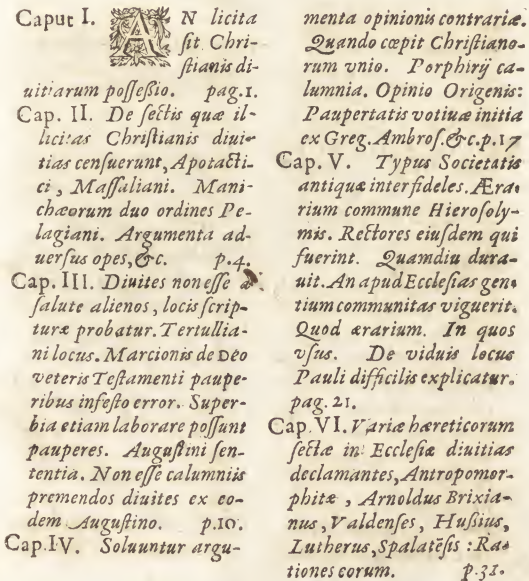 Caput I. AN licita
sit Chri-
stianis di-
uitiarum possessio. pag.1.
Cap. II. De sectis quæ il-
licitas Christianis diui-
tias censuerunt, Apotacti-
ci, Massaliani. Mani-
chæorum duo ordines Pe-
lagiani. Argumenta ad-
uersus opes, &c. p.4.
Cap. III. Diuites non esse à
salute alienos, locis scrip-
turæ probatur. Tertullia-
ni locus. Marcionis de Deo
veteris Testamenti paupe-
ribus infesto error. Super-
bia etiam laborare possunt
pauperes. Augustini sen-
tentia. Non esse calumniis
premendos diuites ex eo-
dem Augustino. p.10.
Cap. IV. Soluuntur argu-
menta opinionis contrariæ.
Quando cœpit Christiano-
rum vnio. Porphirij ca-
lumnia. Opinio Origenis:
Paupertatis votiuæ initia
ex Greg. Ambros. &c. p.17
Cap. V. Typus Societatis
antiquæ inter fideles. Æra-
rium commune Hierosoly-
mis. Rectores eiusdem qui
fuerint. Quamdiu dura-
uit. An apud Ecclesias gen-
tium communitas viguerit.
Quod ærarium. In quos
vsus. De viduis locus
Pauli difficilis explicatur.
pag. 21.
Cap. VI. Variæ hæreticorum
sectæ in Ecclesiæ diuitias
declamantes, Antropomor-
phitæ, Arnoldus Brixia-
nus, Valdenses, Hussius,
Lutherus, Spalatẽsis: Ra-
tiones eorum. p.31.